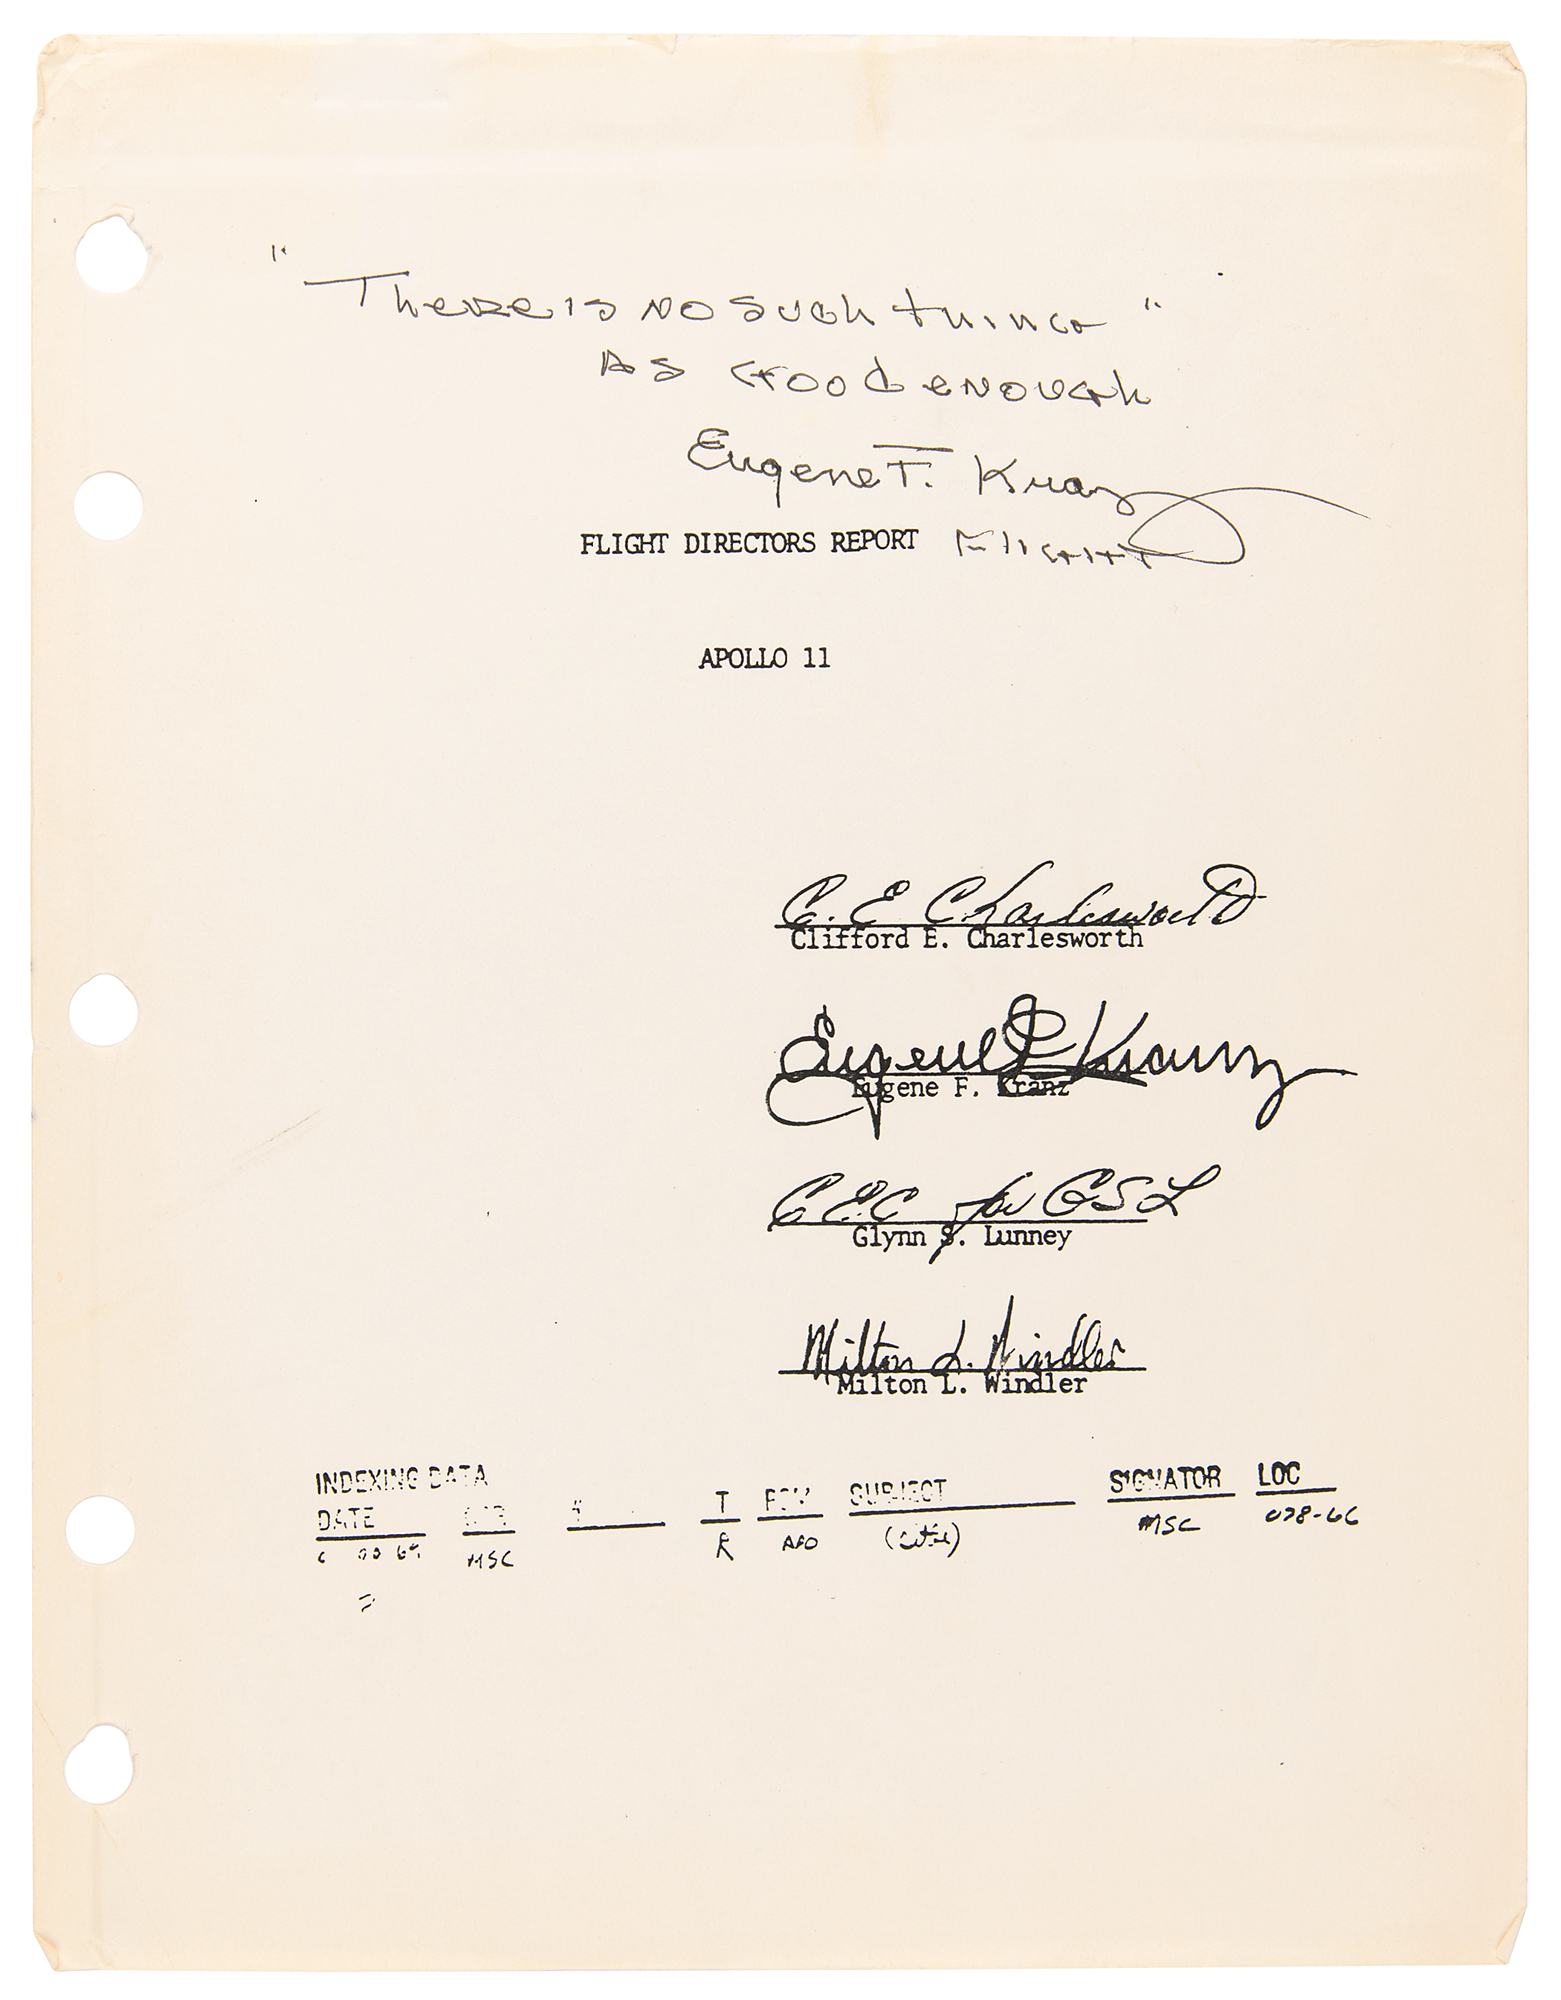 "There is no such thing"
as good enough
Eugene F. Kranz
FLIGHT DIRECTORS REPORT Flight
APOLLO 11
C. E Charlesworth
Clifford E. Charlesworth
Eugene F Kranz
Eugene F. Kranz
CEC for GSL
Glynn S. Lunney
Milton L. Windler
Milton L. Windler
INDEXING DATA
DATE # T PGM SUBJECT SIGNATOR LOC
69 MSC R APO (title) MSC 078-66